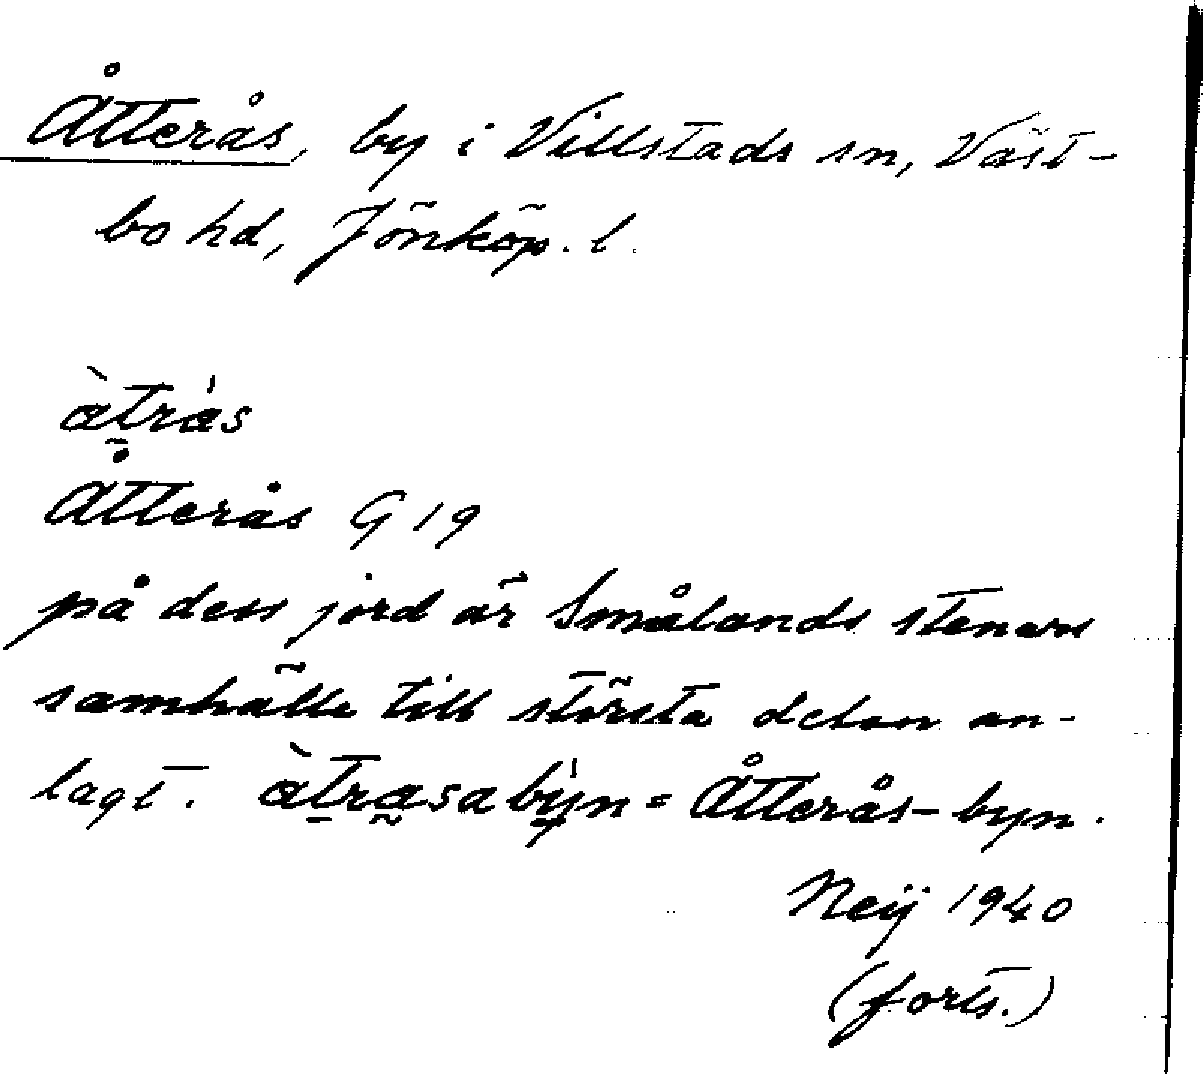 Åtterås, by i Villstads sn, Väst-
bo hd, Jönköp. l.
àt̰rás
Åtterås G 19
på dess jord är Smålands stenars
samhälle till största delen an-
lagt. àt̠ra̰sabýn = Åtterås-byn.
Neij 1940
(forts.)